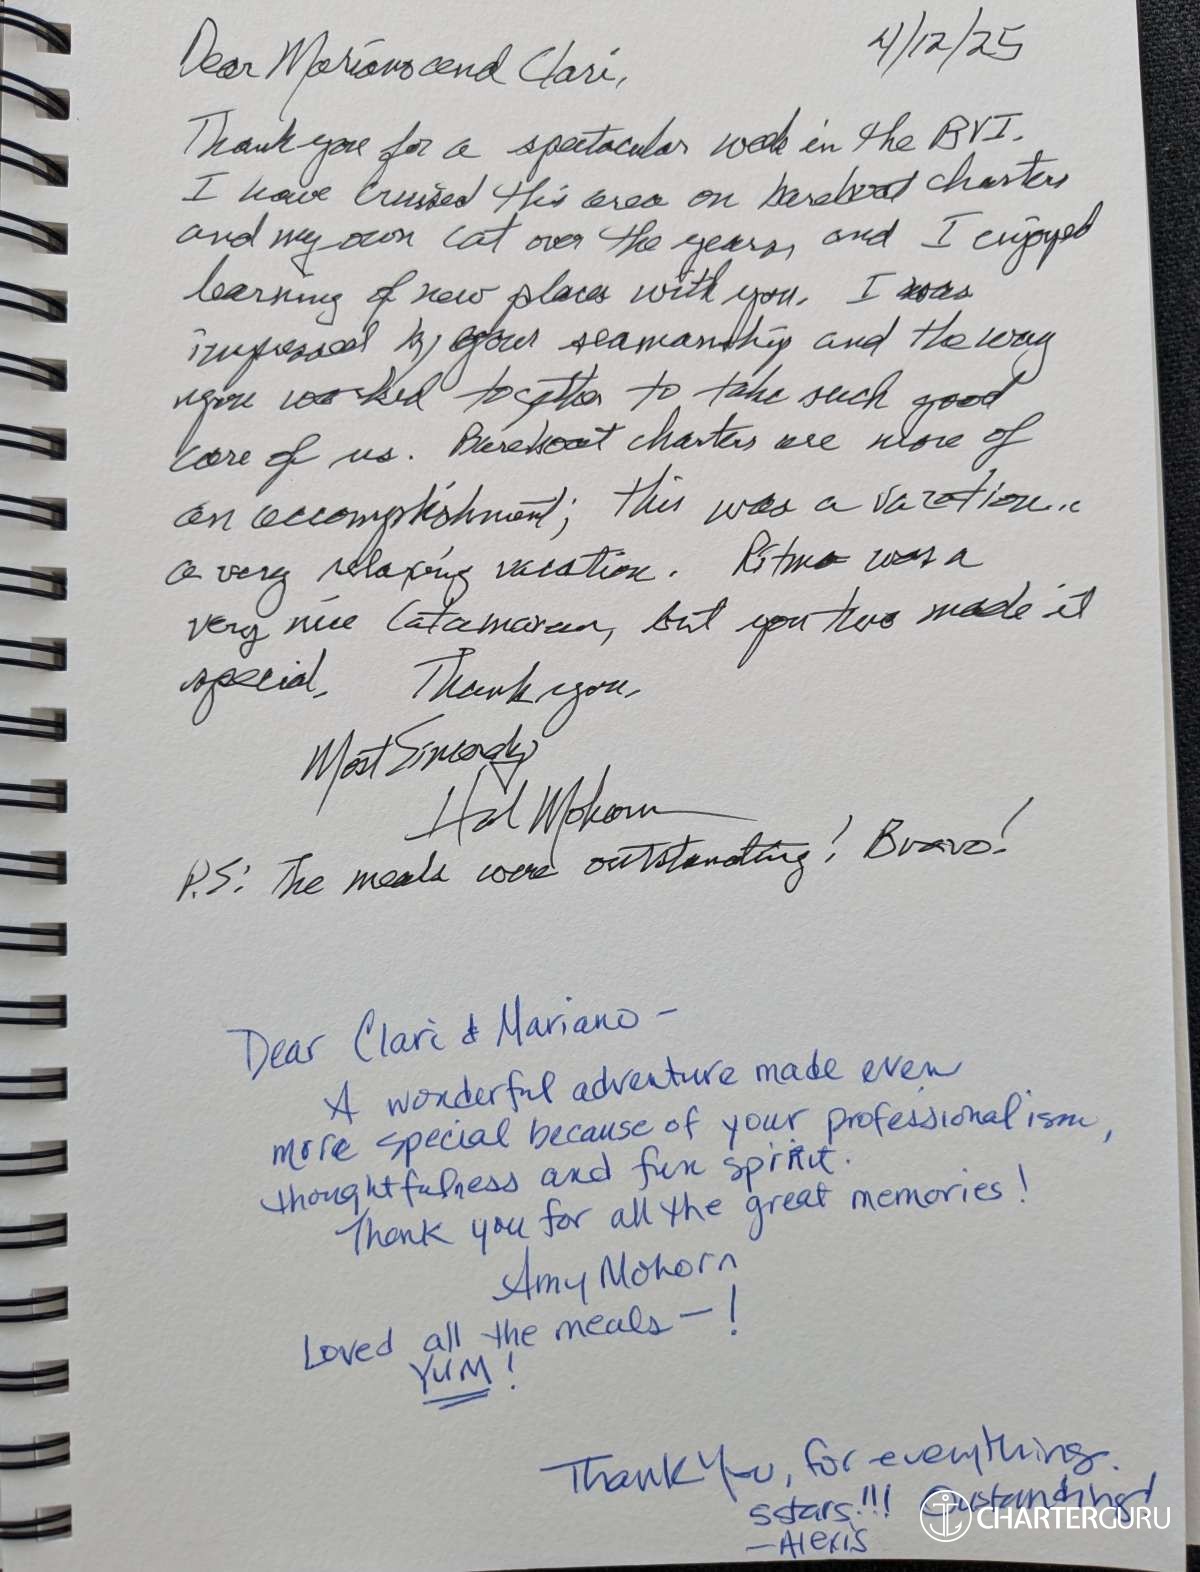 4/12/25
Dear Mariano and Clari,
Thank you for a spectacular week in the BVI.
I have cruised this area on bareboat charters
and my own cat over the years, and I enjoyed
learning of new places with you. I was
impressed by your seamanship and the way
you worked together to take such good
care of us. Bareboat charters are more of
an accomplishment; this was a vacation...
a very relaxing vacation. Ritmo was a
very nice Catamaran, but you two made it
special. Thank you.
Most Sincerely,
Hal Mohorn
P.S: The meals were outstanding! Bravo!
Dear Clari & Mariano -
A wonderful adventure made even
more special because of your professionalism,
thoughtfulness and fun spirit.
Thank you for all the great memories!
Amy Mohorn
Loved all the meals - !
YUM!
Thank You, for everything.
5stars!!! Oustanding!
- Alexis
CHARTERGURU